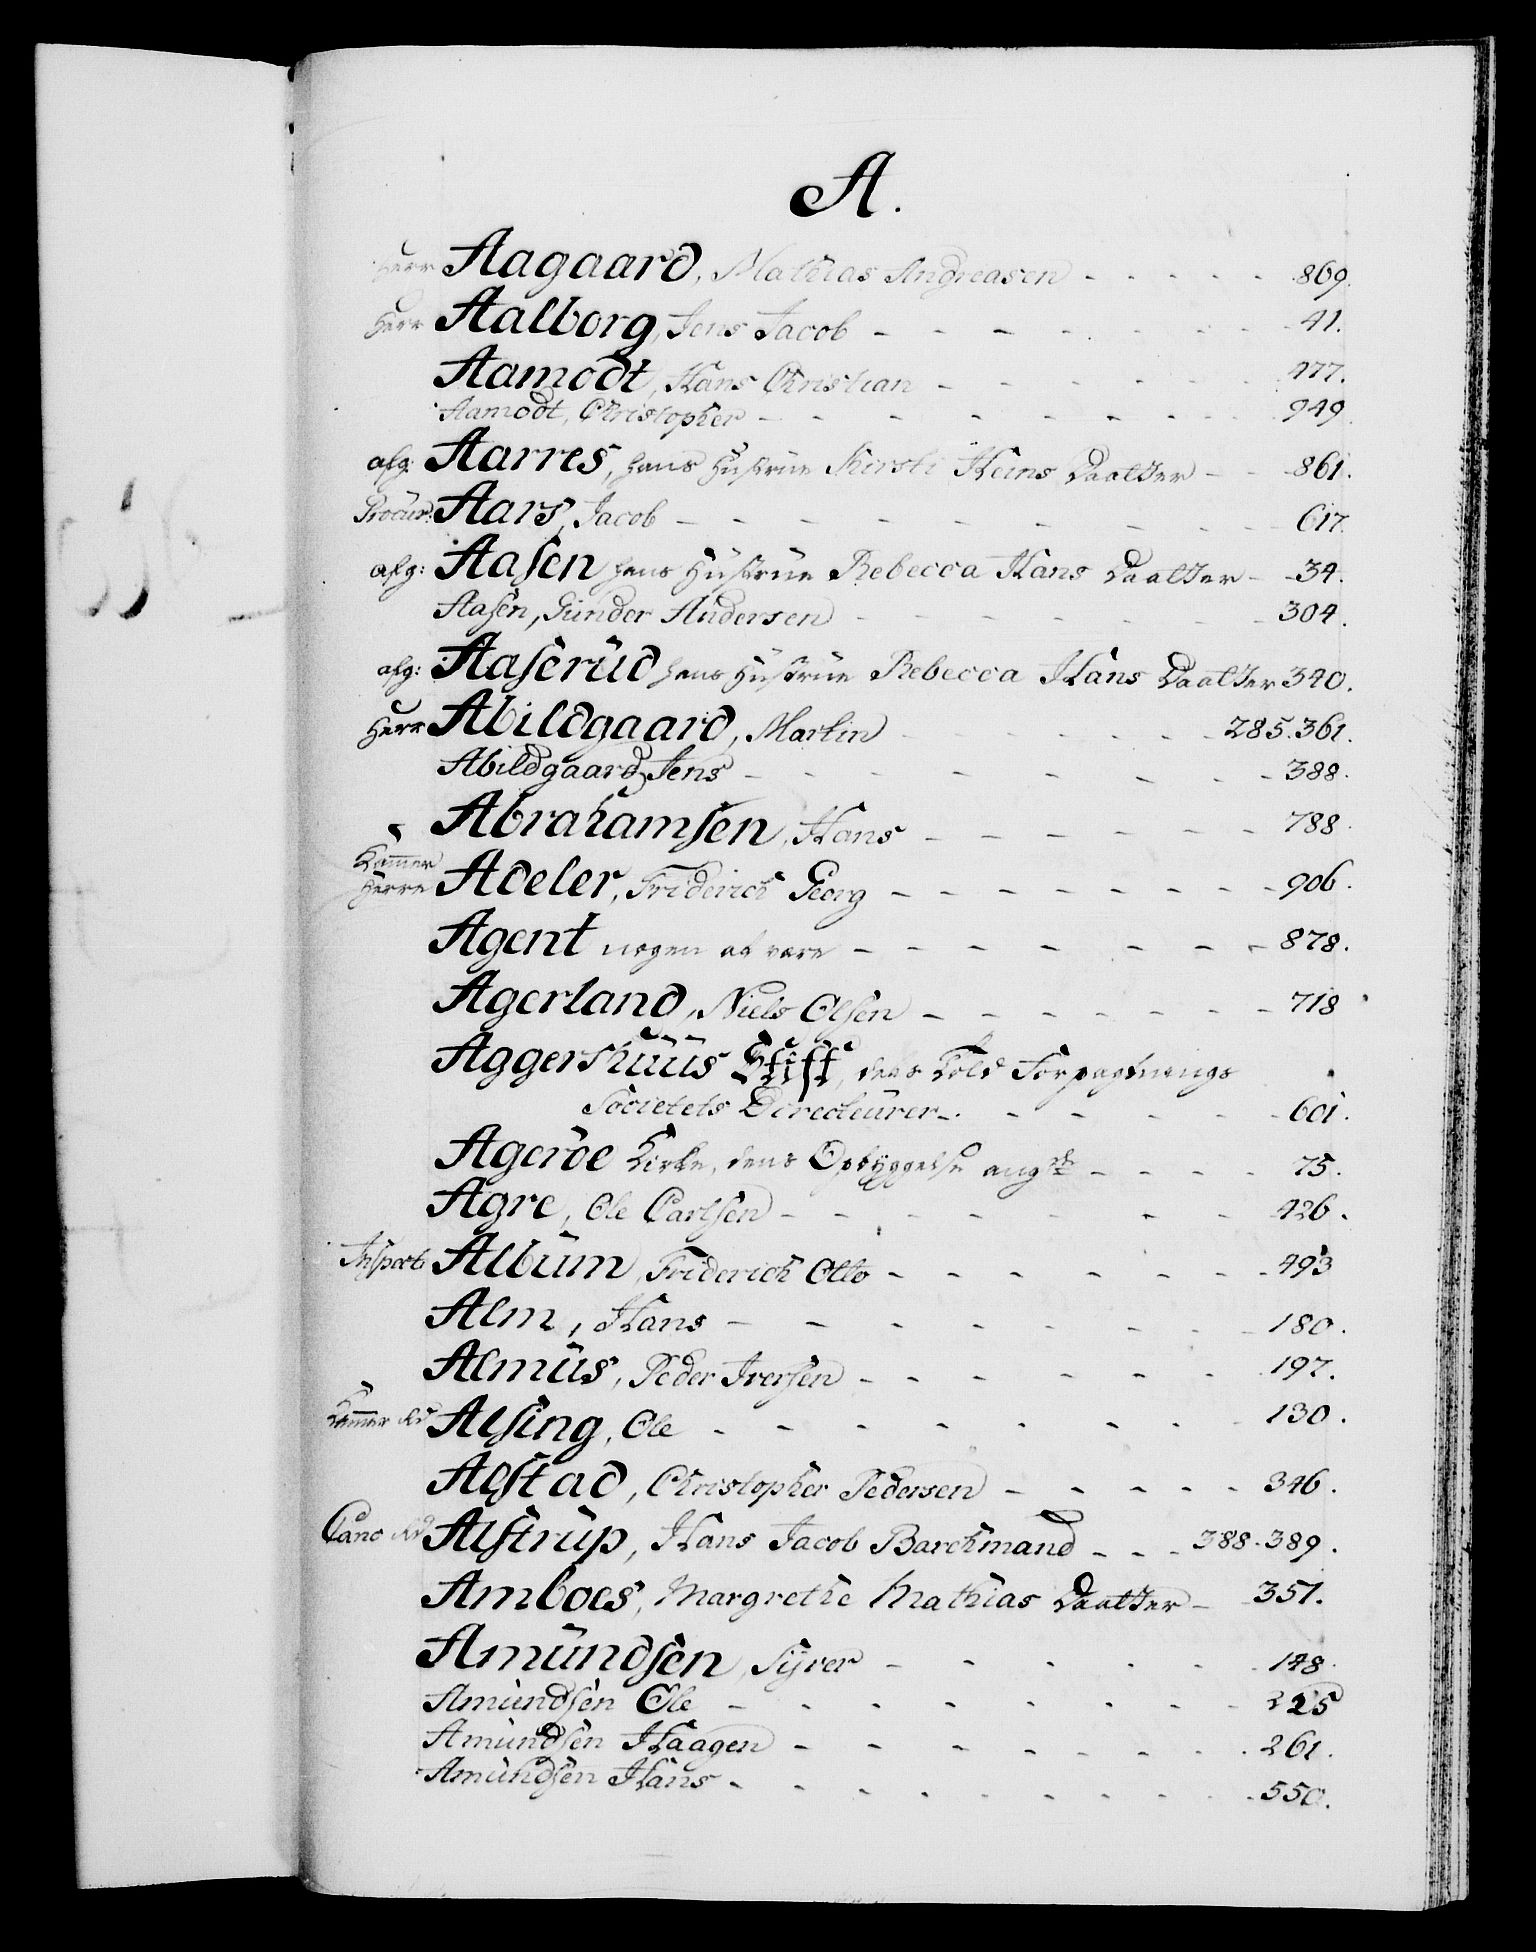 A.
Herr Aagaard, Mathias Andreasen - - - - - 869.
Herr Aalborg, Jens Jacob - - - - - - - - 41.
Aamodt, Hans Christian - - - - - 477.
Aamodt, Christopher - - - - - - - 949.
afg: Aarres, hans Hustrue Kirsti Heins Daatter - - 861.
Procur: Aars, Jacob - - - - - - - - 617.
afg: Aasen hans Hustrue Rebecca Hans Daatter - - 34.
Aasen, Gunder Andersen - - - - - - 304.
afg: Aaserud hans Hustrue Rebecca Hans Daatter 340.
Herr Abildgaard, Martin - - - - - 285. 361.
Abildgaard, Jens - - - - - - - 388.
Abrahamsen, Hans - - - - - - 788.
Kammer
Herre Adeler, Friderich Georg - - - - - - - - 906.
Agent nogen at være - - - - - - - 878.
Agerland, Niels Olsen - - - - - - - 718
Aggershuus Stift, dens Told Forpagtnings
Societets Directeurer - - - - - - 601.
Ageröe Kirke, dens Opbyggelse angde - - - - 75.
Agre, Ole Carlsen - - - - - - - - 426.
Inspect: Album, Friderich Otto - - - - - - - 493
Alm, Hans - - - - - - - - 180.
Almus, Peder Iversen - - - - - - 197.
Kammer Rd Alsing, Ole - - - - - - - - 130.
Alstad, Christopher Pedersen - - - - - 346.
Canc Rd Alstrup, Hans Jacob Barchmand - - - 388. 389.
Amboes, Margrethe Mathias Daatter - - 351.
Amundsen, Syver - - - - - - 148.
Amundsen Ole - - - - - - - - 225
Amundsen Haagen - - - - - - - 261.
Amundsen Hans - - - - - - - - 550.